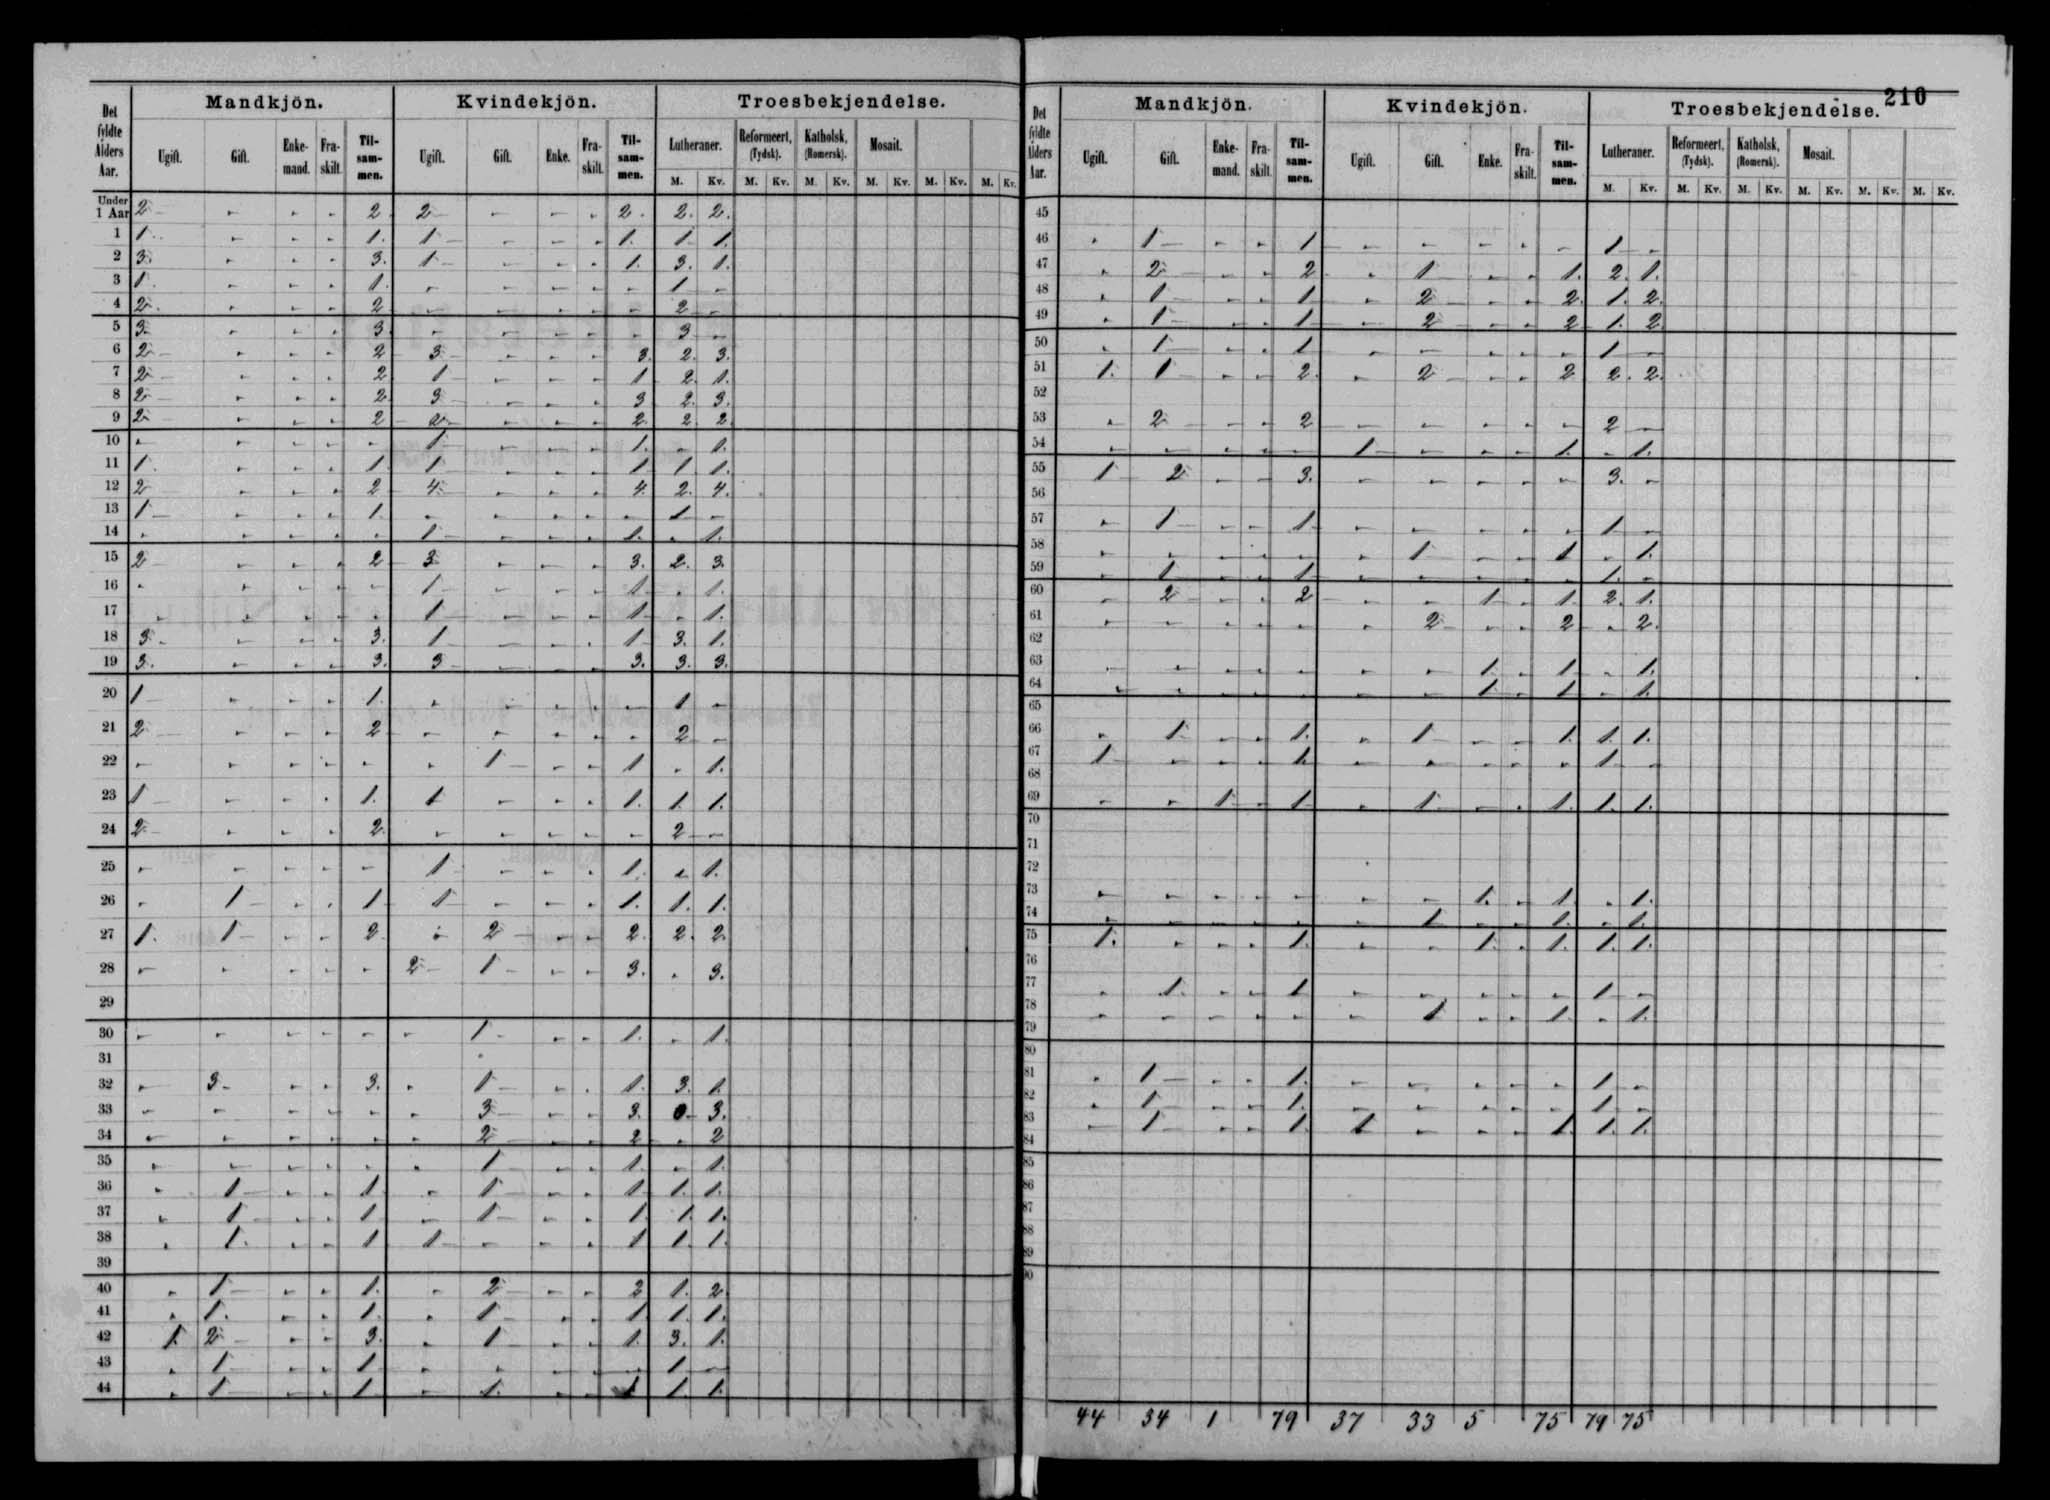 Mandkjön. Kvindekjön. Troesbekjendelse.
Det fyldte Alders Aar. Ugift. Gift. Enke-mand. Fra-skilt. Til-sam-men. Ugift. Gift. Enke. Fra-skilt. Til-sam-men. Lutheraner. Reformeert, (Tydsk). Katholsk, (Romersk). Mosait.
M. Kv. M. Kv. M. Kv. M. Kv. M. Kv. M. Kv.
Under 1 Aar 2 - - - 2 2 - - - 2. 2. 2.
1 1. - - - 1. 1 - - - 1. 1 1.
2 3. - - - 3. 1 - - - 1. 3. 1.
3 1. - - - 1. - - - - - 1 -
4 2. - - - 2 - - - - - 2 -
5 3. - - - 3 - - - - - 3 -
6 2 - - - 2 3 - - - 3. 2. 3.
7 2 - - - 2 1 - - - 1 2. 1.
8 2 - - - 2 3 - - - 3 2. 3.
9 2 - - - 2 2 - - - 2. 2. 2
10 - - - - - 1 - - - 1. - 1.
11 1. - - - 1. 1 - - - 1 1 1.
12 2 - - - 2 4 - - - 4. 2. 4.
13 1 - - - 1. - - - - - 1 -
14 - - - - - 1 - - - 1. - 1.
15 2 - - - 2 3 - - - 3. 2. 3.
16 - - - - - 1 - - - 1 - 1.
17 - - - - - 1 - - - 1 - 1.
18 3. - - - 3. 1 - - - 1 3. 1.
19 3. - - - 3. 3 - - - 3. 3. 3.
20 1 - - - 1. - - - - - 1 -
21 2 - - - 2 - - - - - 2 -
22 - - - - - - 1 - - 1 - 1.
23 1 - - - 1. 1 - - - 1. 1. 1.
24 2 - - - 2. - - - - - 2 -
25 - - - - - 1 - - - 1. - 1.
26 - 1 - - 1 1 - - - 1. 1. 1.
27 1. 1 - - 2. - 2 - - 2. 2. 2.
28 - - - - - 2 1 - - 3. - 3.
29
30 - - - - - - 1 - - 1. - 1.
31
32 - 3. - - 3. - 1 - - 1. 3. 1.
33 - - - - - - 3 - - 3. 0 3.
34 - - - - - - 2 - - 2 - 2
35 - - - - - - 1 - - 1. - 1.
36 - 1 - - 1. - 1 - - 1 1. 1.
37 - 1 - - 1 - 1 - - 1. 1. 1.
38 - 1. - - 1 1 - - - 1 1. 1.
39
40 - 1 - - 1. - 2 - - 2 1. 2
41 - 1. - - 1. - 1 - - 1 1. 1.
42 1. 2 - - 3. - 1 - - 1. 3. 1.
43 - 1 - - 1 - - - - - 1 -
44 - 1 - - 1 - 1. - - 1 1. 1.
210
Mandkjön. Kvindekjön. Troesbekjendelse.
Det fyldte Alders Aar. Ugift. Gift. Enke-mand. Fra-skilt. Til-sam-men. Ugift. Gift. Enke. Fra-skilt. Til-sam-men. Lutheraner. Reformeert, (Tydsk). Katholsk, (Romersk). Mosait.
M. Kv. M. Kv. M. Kv. M. Kv. M. Kv. M. Kv.
45
46 - 1 - - 1 - - - - - 1 -
47 - 2 - - 2 - 1 - - 1. 2. 1.
48 - 1 - - 1 - 2 - - 2. 1. 2.
49 - 1 - - 1 - 2 - - 2 1. 2
50 - 1 - - 1 - - - - - 1 -
51 1. 1 - - 2. - 2 - - 2 2. 2.
52
53 - 2 - - 2 - - - - - 2 -
54 - - - - - 1 - - - 1. - 1.
55 1 2 - - 3. - - - - - 3. -
56
57 - 1 - - 1 - - - - - 1 -
58 - - - - - - 1 - - 1 - 1.
59 - 1 - - 1 - - - - - 1. -
60 - 2 - - 2 - - 1 - 1. 2. 1.
61 - - - - - - 2 - - 2 - 2.
62
63 - - - - - - - 1. - 1. - 1.
64 - - - - - - - 1 - 1 - 1.
65
66 - 1 - - 1. - 1 - - 1. 1. 1.
67 1 - - - 1. - - - - - 1 -
68
69 - - 1 - 1 - 1 - - 1. 1. 1.
70
71
72
73 - - - - - - - 1. - 1. - 1.
74 - - - - - - 1 - - 1. - 1.
75 1. - - - 1. - - 1. - 1. 1. 1.
76
77 - 1. - - 1 - - - - - 1 -
78 - - - - - - 1 - - 1. - 1.
79
80
81 - 1 - - 1. - - - - - 1 -
82 - 1 - - 1. - - - - - 1 -
83 - 1 - - 1. 1 - - - 1. 1. 1.
84
85
86
87
88
89
90
44 34 1 79 37 33 5 75 79 75